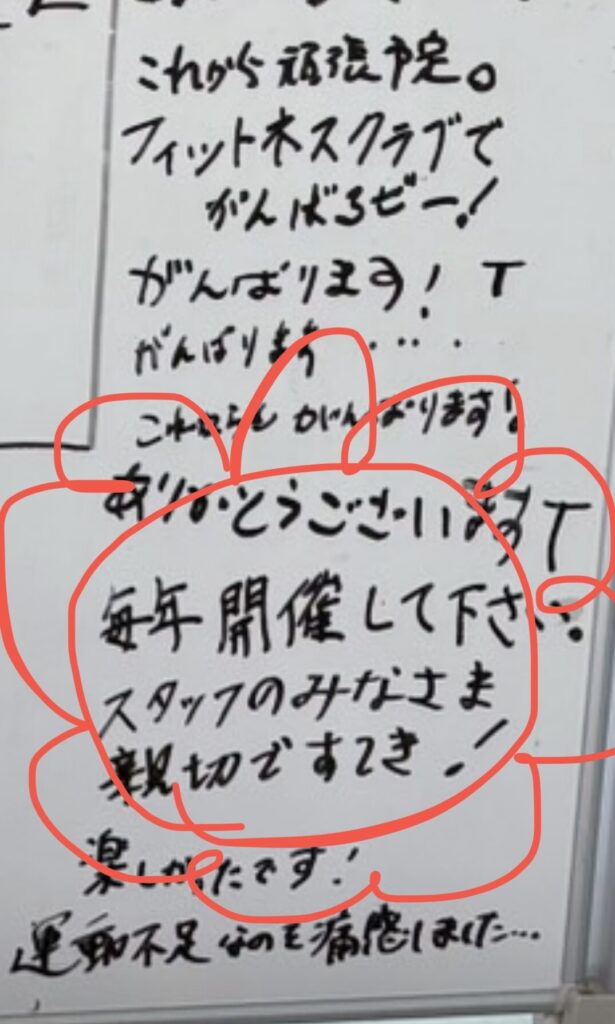 これから頑張予定。
フィットネスクラブで
がんばるゼー!
がんばります! T
がんばります ....
これからも がんばります!
ありがとうございます T
毎年開催して下さい。
スタッフのみなさま
親切ですてき!
楽しかったです!
運動不足なのを痛感しました…